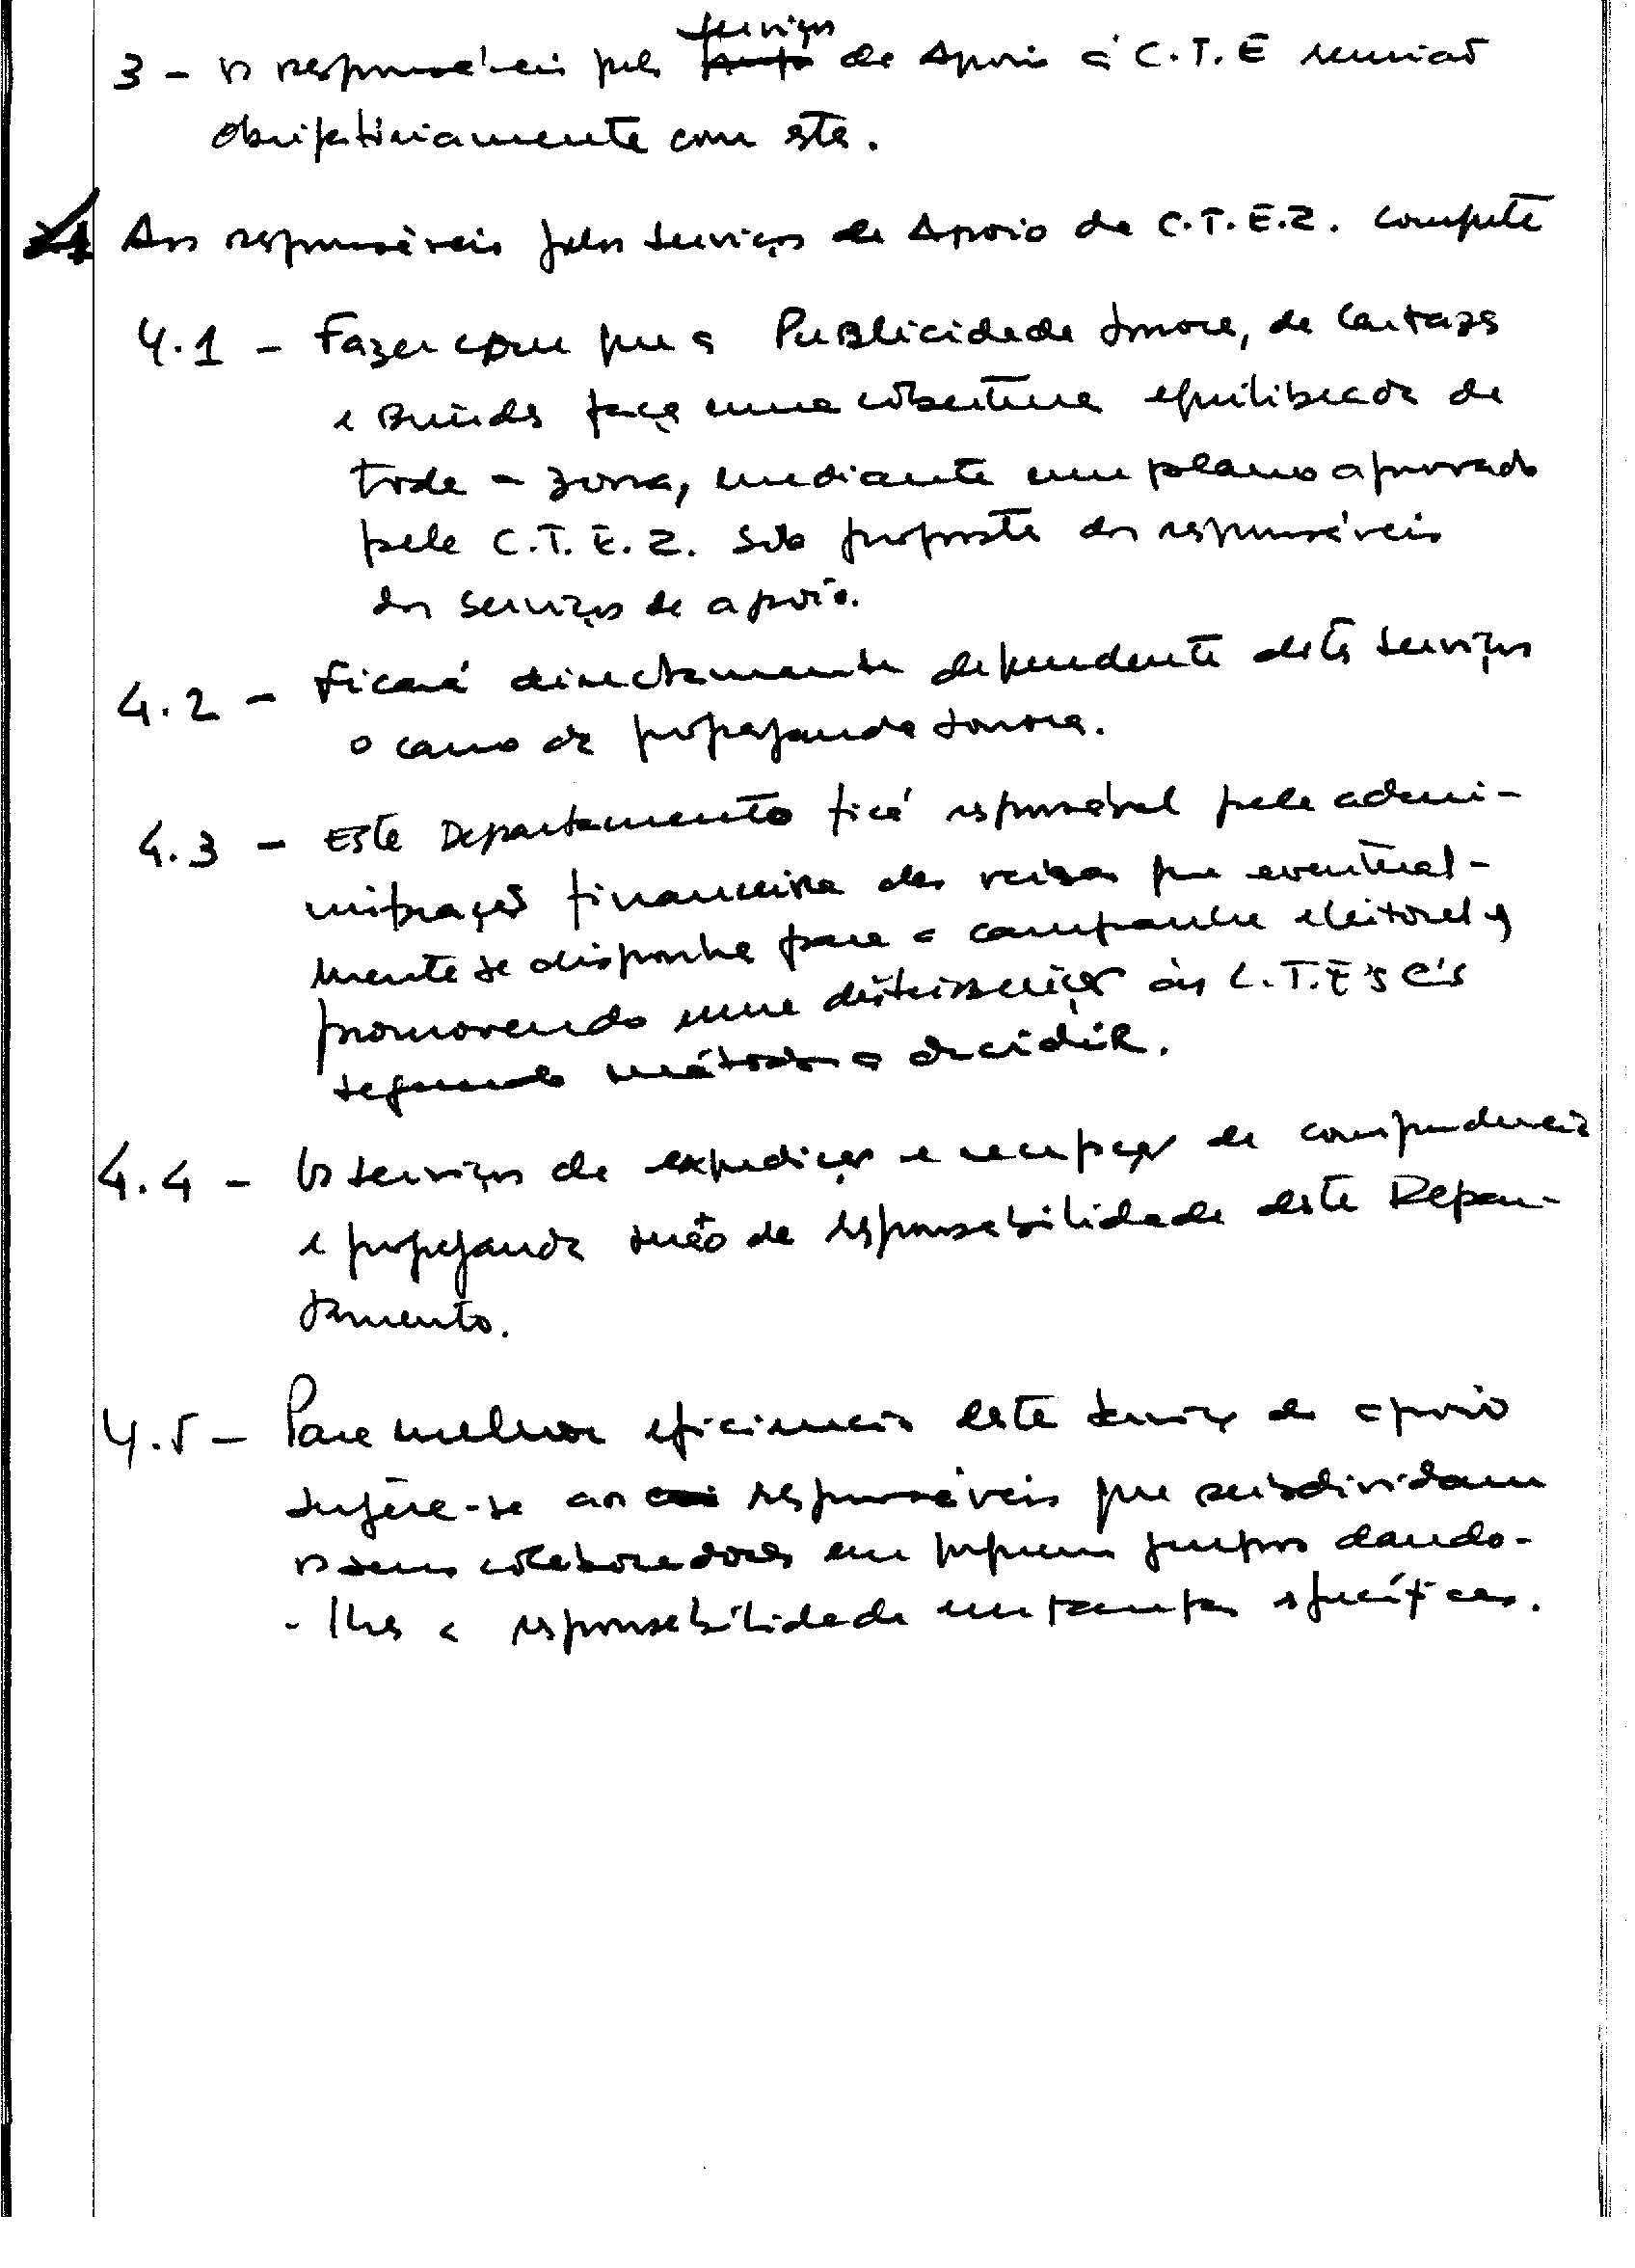 3 - os responsáveis pelos serviços de Apoio à C.T.E reunião
obrigatóriamente com esta.
4 Aos responsáveis pelos serviços de Apoio da C.T.E.Z. compete
4.1 - Fazer com que a Publicidade sonora, de Cartazes
e Brindes faça uma cobertura equilibrada de
toda a zona, mediante um plano aprovado
pela C.T.E.Z. sob proposta dos responsáveis
dos serviços de apoio.
4.2 - Ficará directamente dependente destes serviços
o carro de propaganda sonora.
4.3 - Este Departamento fica responsável pela admi-
nistração financeira das verbas que eventual-
mente se disponha para a campanha eleitoral e
promovendo uma distribuição às C.T.E's C's
segundo método a decidir.
4.4 - Os serviços de expedição e recepção de correspondencia
e propaganda serão de responsabilidade deste Depar-
tamento.
4.5 - Para melhor eficiencia deste serviço de apoio
sugere-se aos responsáveis que subdividam
os seus colaboradores em pequenos grupos dando-
-lhes a responsabilidade em tarefas específicas.